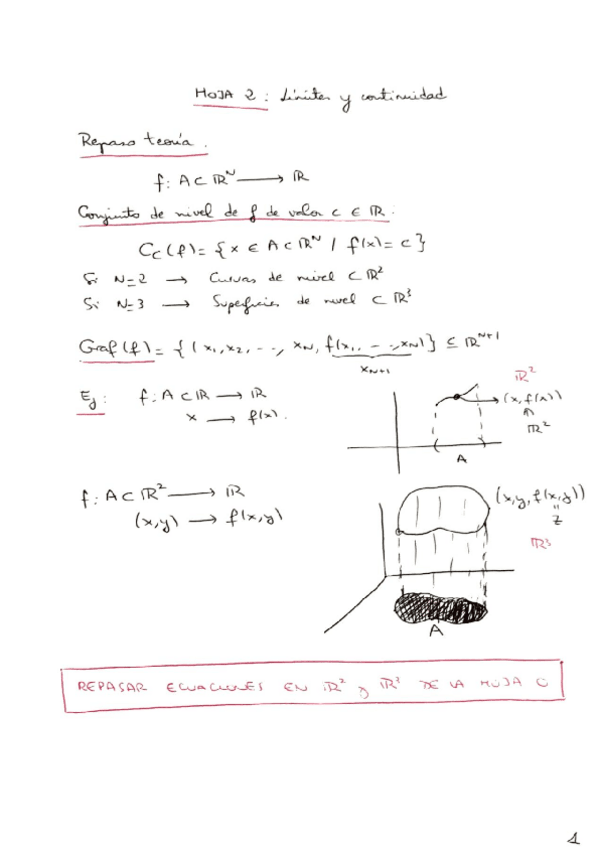 HOJA 2: Límites y continuidad
Repaso teoría.
f: A ⊂ ℝᴺ ⟶ ℝ
Conjunto de nivel de f de valor c ∈ ℝ:
C_c(f) = { x ∈ A ⊂ ℝᴺ / f(x) = c }
Si N=2 → Curvas de nivel ⊂ ℝ²
Si N=3 → Superficies de nivel ⊂ ℝ³
Graf(f) = { (x₁, x₂, ..., x_N, f(x₁, ..., x_N)) } ⊆ ℝᴺ⁺¹
x_N+1
Ej: f: A ⊂ ℝ ⟶ ℝ
x ⟶ f(x).
ℝ²
(x, f(x))
∩
ℝ²
A
f: A ⊂ ℝ² ⟶ ℝ
(x,y) ⟶ f(x,y)
(x,y, f(x,y))
=
z
ℝ³
A
REPASAR ECUACIONES EN ℝ² y ℝ³ DE LA HOJA 0
1